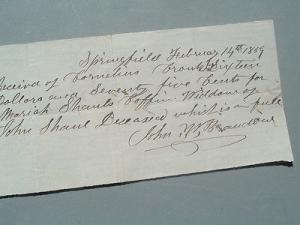 Springfield February 14th 1859
Received of Cornelius Crouk Sixteen
Dollars and Seventy five Cents for
Mariah Shauls Coffin. Widdow of
John Shaul Deceased which is in full
John W